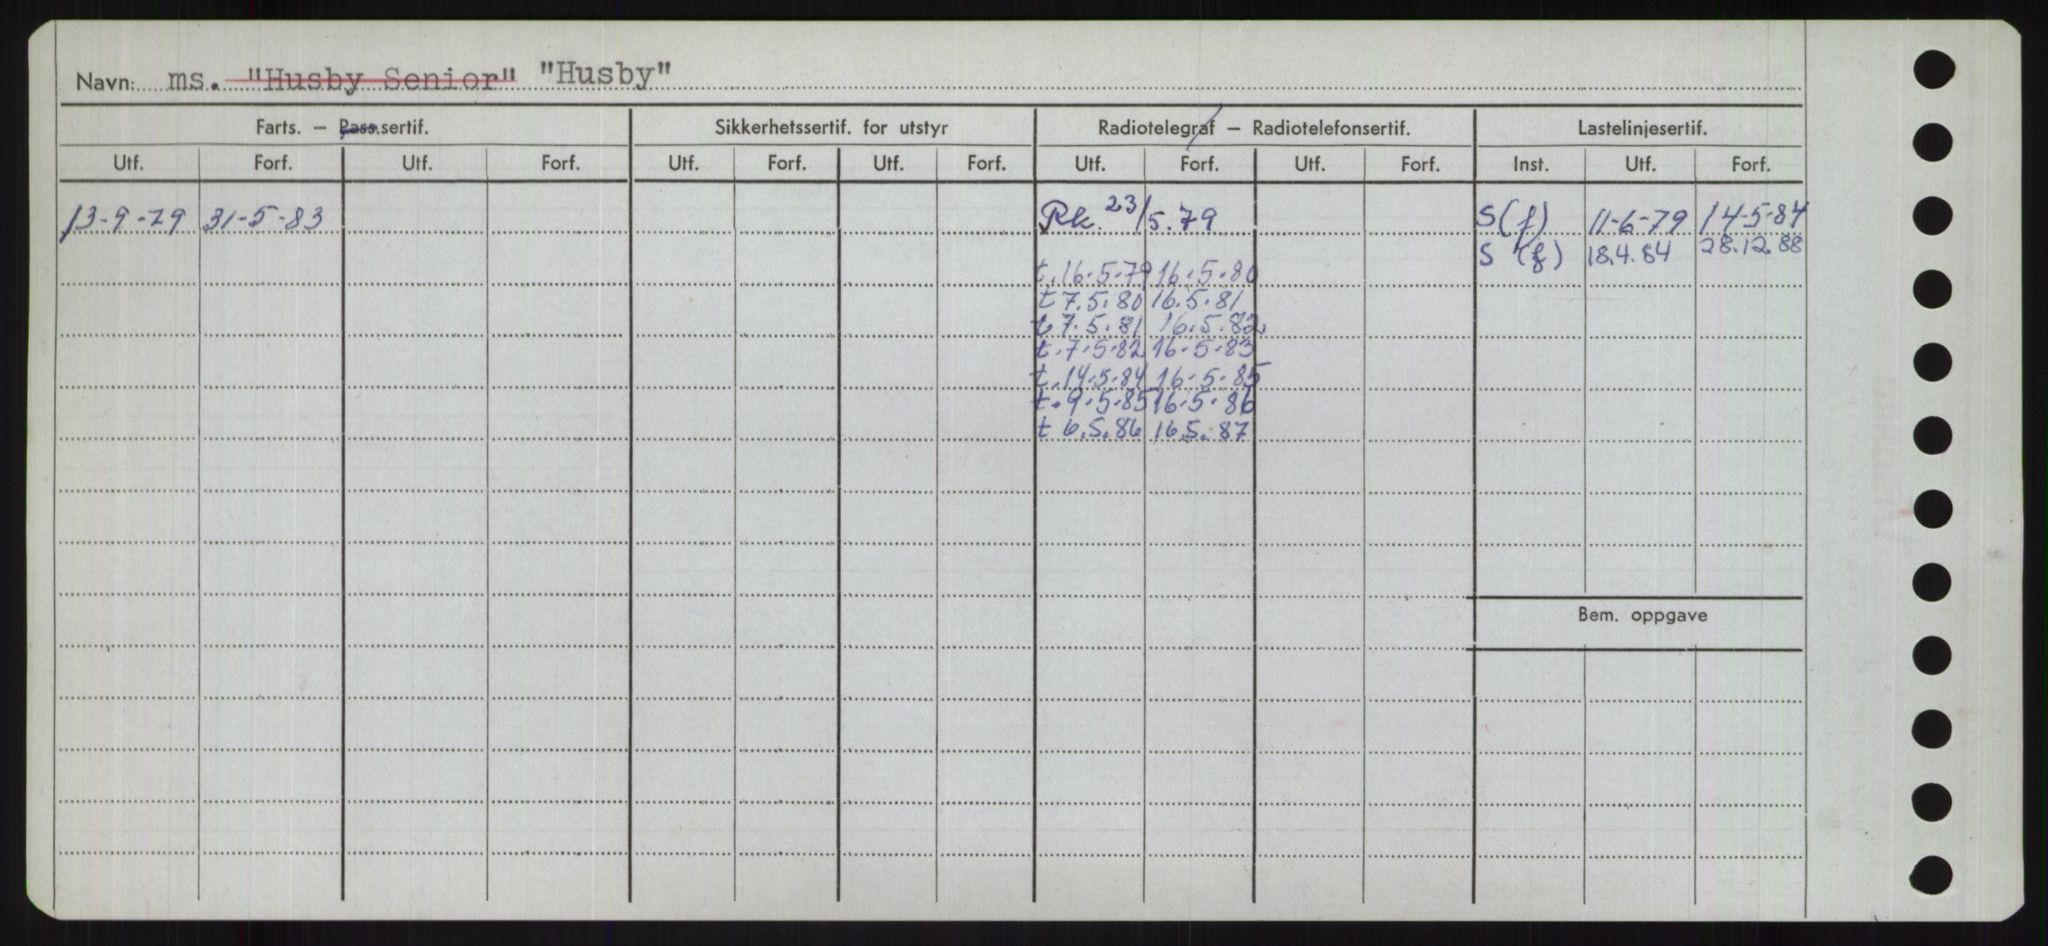 Navn: ms. "Husby Senior" "Husby"
Farts. — Pass.sertif. Sikkerhetssertif. for utstyr Radiotelegraf — Radiotelefonsertif. Lastelinjesertif.
Utf. Forf. Utf. Forf. Utf. Forf. Utf. Forf. Utf. Forf. Utf. Forf. Inst. Utf. Forf.
13-9-79 31-5-83 Rk. 23/5.79 S(f) 11-6-79 14-5-84
S (f) 18.4.84 28.12.88
t.16.5.79 16.5.80
t 7.5.80 16.5.81
t.7.5.81 16.5.82.
t.7.5.82 16.5.83
t.14.5.84 16.5.85
t.9.5.85 16.5.86
t 6.5.86 16.5.87
Bem. oppgave